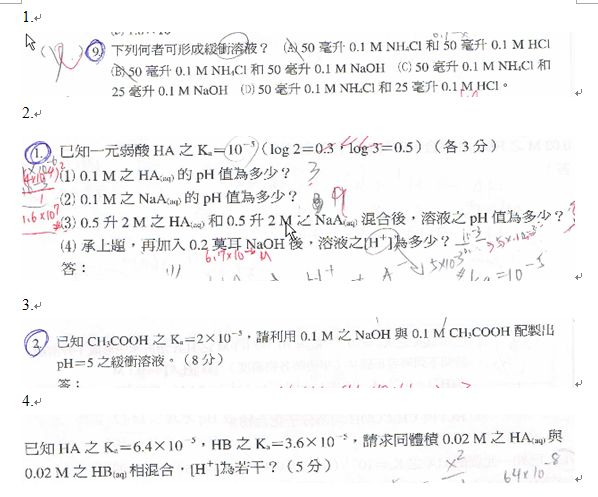 1.
9. 下列何者可形成緩衝溶液？ (A) 50 毫升 0.1 M NH₄Cl 和 50 毫升 0.1 M HCl
(B) 50 毫升 0.1 M NH₄Cl 和 50 毫升 0.1 M NaOH (C) 50 毫升 0.1 M NH₄Cl 和
25 毫升 0.1 M NaOH (D) 50 毫升 0.1 M NH₄Cl 和 25 毫升 0.1 M HCl。
2.
1. 已知一元弱酸 HA 之 Kₐ=10⁻⁵ (log 2=0.3，log 3=0.5) (各 3 分)
(1) 0.1 M 之 HA(aq) 的 pH 值為多少？ 3
(2) 0.1 M 之 NaA(aq) 的 pH 值為多少？ 9
1.6×10⁷
(3) 0.5 升 2 M 之 HA(aq) 和 0.5 升 2 M 之 NaA(aq) 混合後，溶液之 pH 值為多少？
(4) 承上題，再加入 0.2 莫耳 NaOH 後，溶液之[H⁺]為多少？
答：
(1) H⁺ + A⁻ 5×10⁻³ =10⁻⁵
3.
2. 已知 CH₃COOH 之 Kₐ=2×10⁻⁵，請利用 0.1 M 之 NaOH 與 0.1 M CH₃COOH 配製出
pH=5 之緩衝溶液。(8 分)
答：
4.
已知 HA 之 Kₐ=6.4×10⁻⁵，HB 之 Kₐ=3.6×10⁻⁵，請求同體積 0.02 M 之 HA(aq) 與
0.02 M 之 HB(aq) 相混合，[H⁺]為若干？(5 分)
x² 64×10⁻⁸